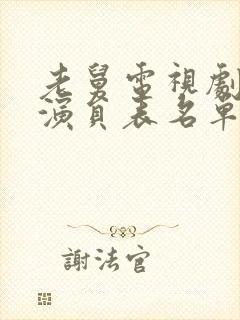 老舅電視劇
演員表名單
謝法官